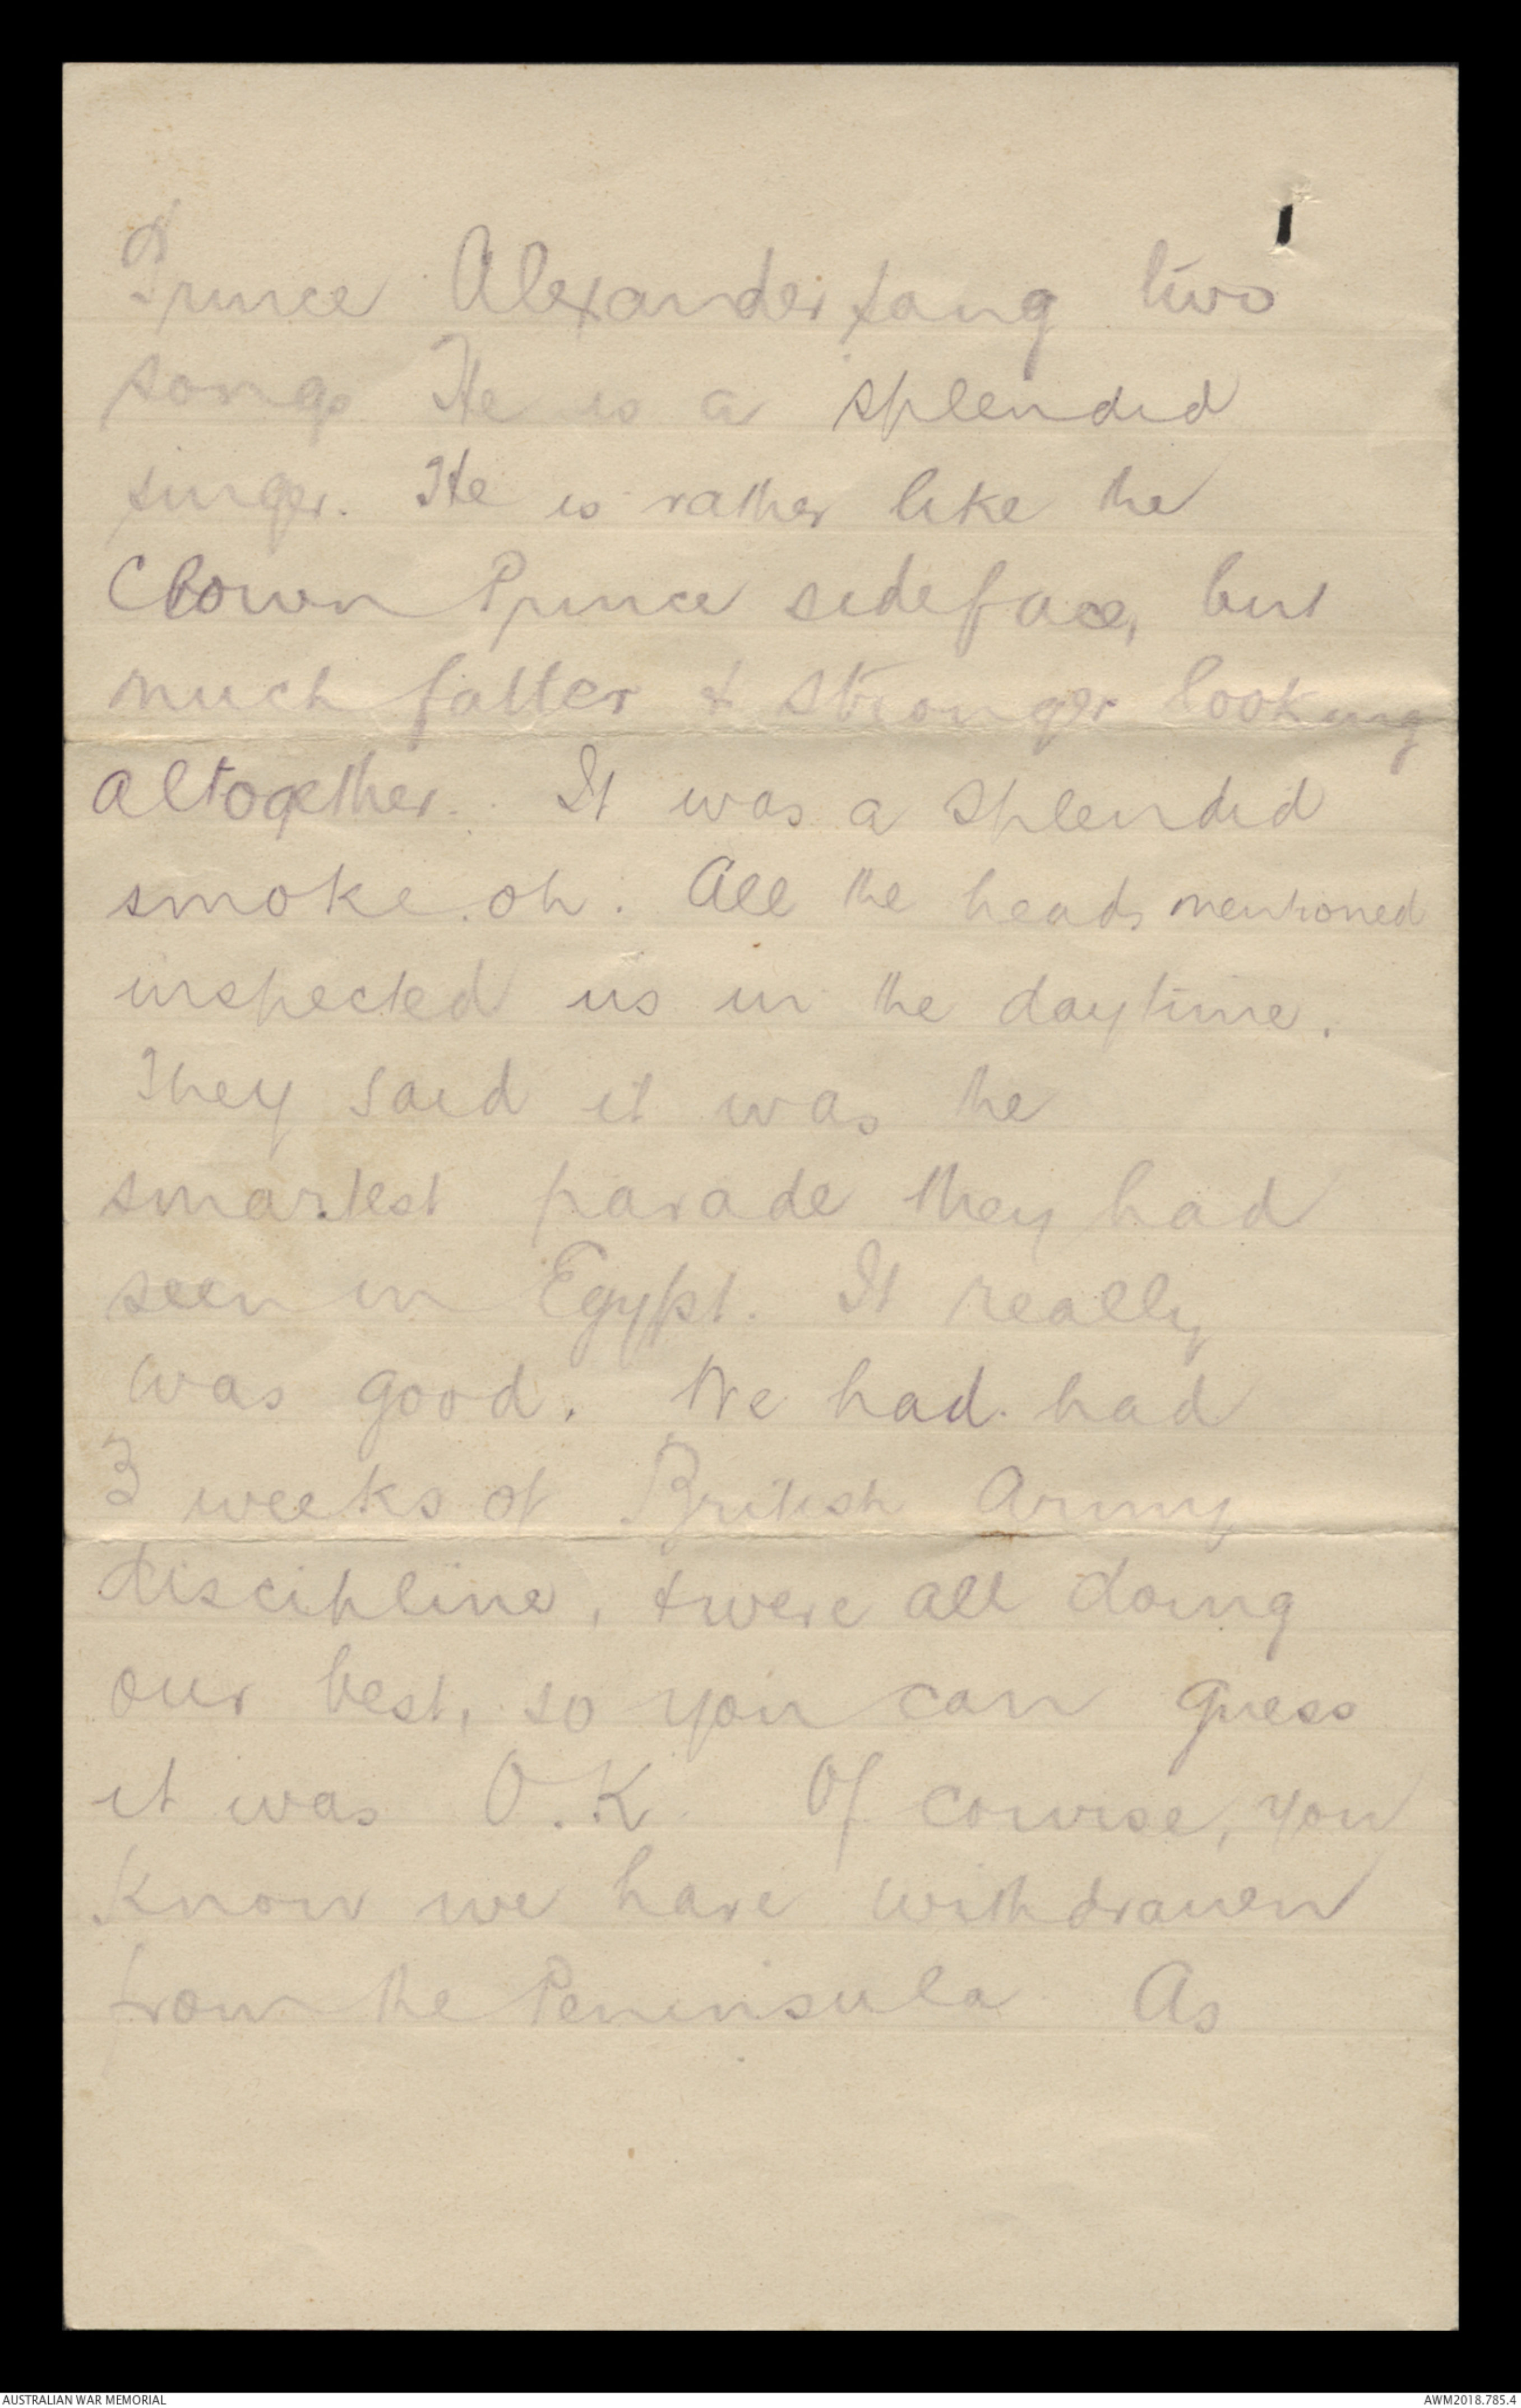 Prince Alexander sang two
songs He is a splendid
singer. He is rather like the
Crown Prince sideface, but
much fatter & stronger looking
altogether. It was a splendid
smoke.oh. All the heads mentioned
inspected us in the daytime.
They said it was the
smartest parade they had
seen in Egypt. It really
was good. We had had
3 weeks of British Army
discipline, & were all doing
our best, so you can guess
it was O.K. Of course, you
know we have withdrawn
from the Peninsula As
AUSTRALIAN WAR MEMORIAL
AWM2018.785.4